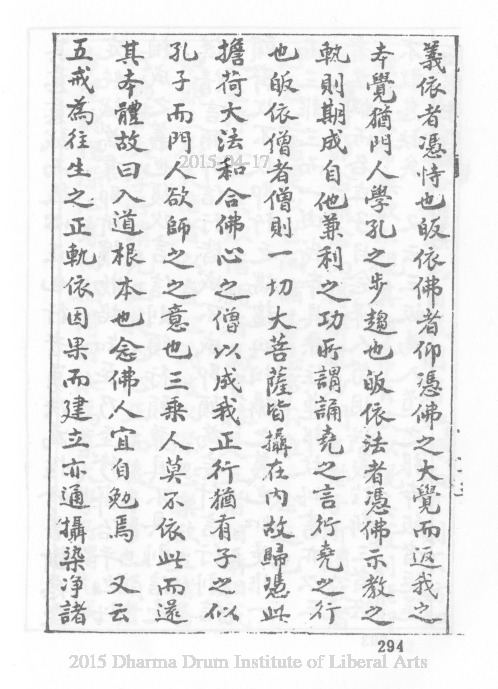 義依者憑恃也皈依佛者仰憑佛之大覺而返我之
夲覺猶門人學孔之步趨也皈依法者憑佛示教之
軌則期成自他兼利之功所謂誦堯之言行堯之行
也皈依僧者僧則一切大菩薩皆攝在內故歸憑此
擔荷大法和合佛心之僧以成我正行猶有子之似
孔子而門人欲師之之意也三乘人莫不依此而還
其夲體故曰入道根本也念佛人宜自勉焉 又云
五戒為往生之正軌依因果而建立亦通攝染净諸
2015-04-17
294
2015 Dharma Drum Institute of Liberal Arts